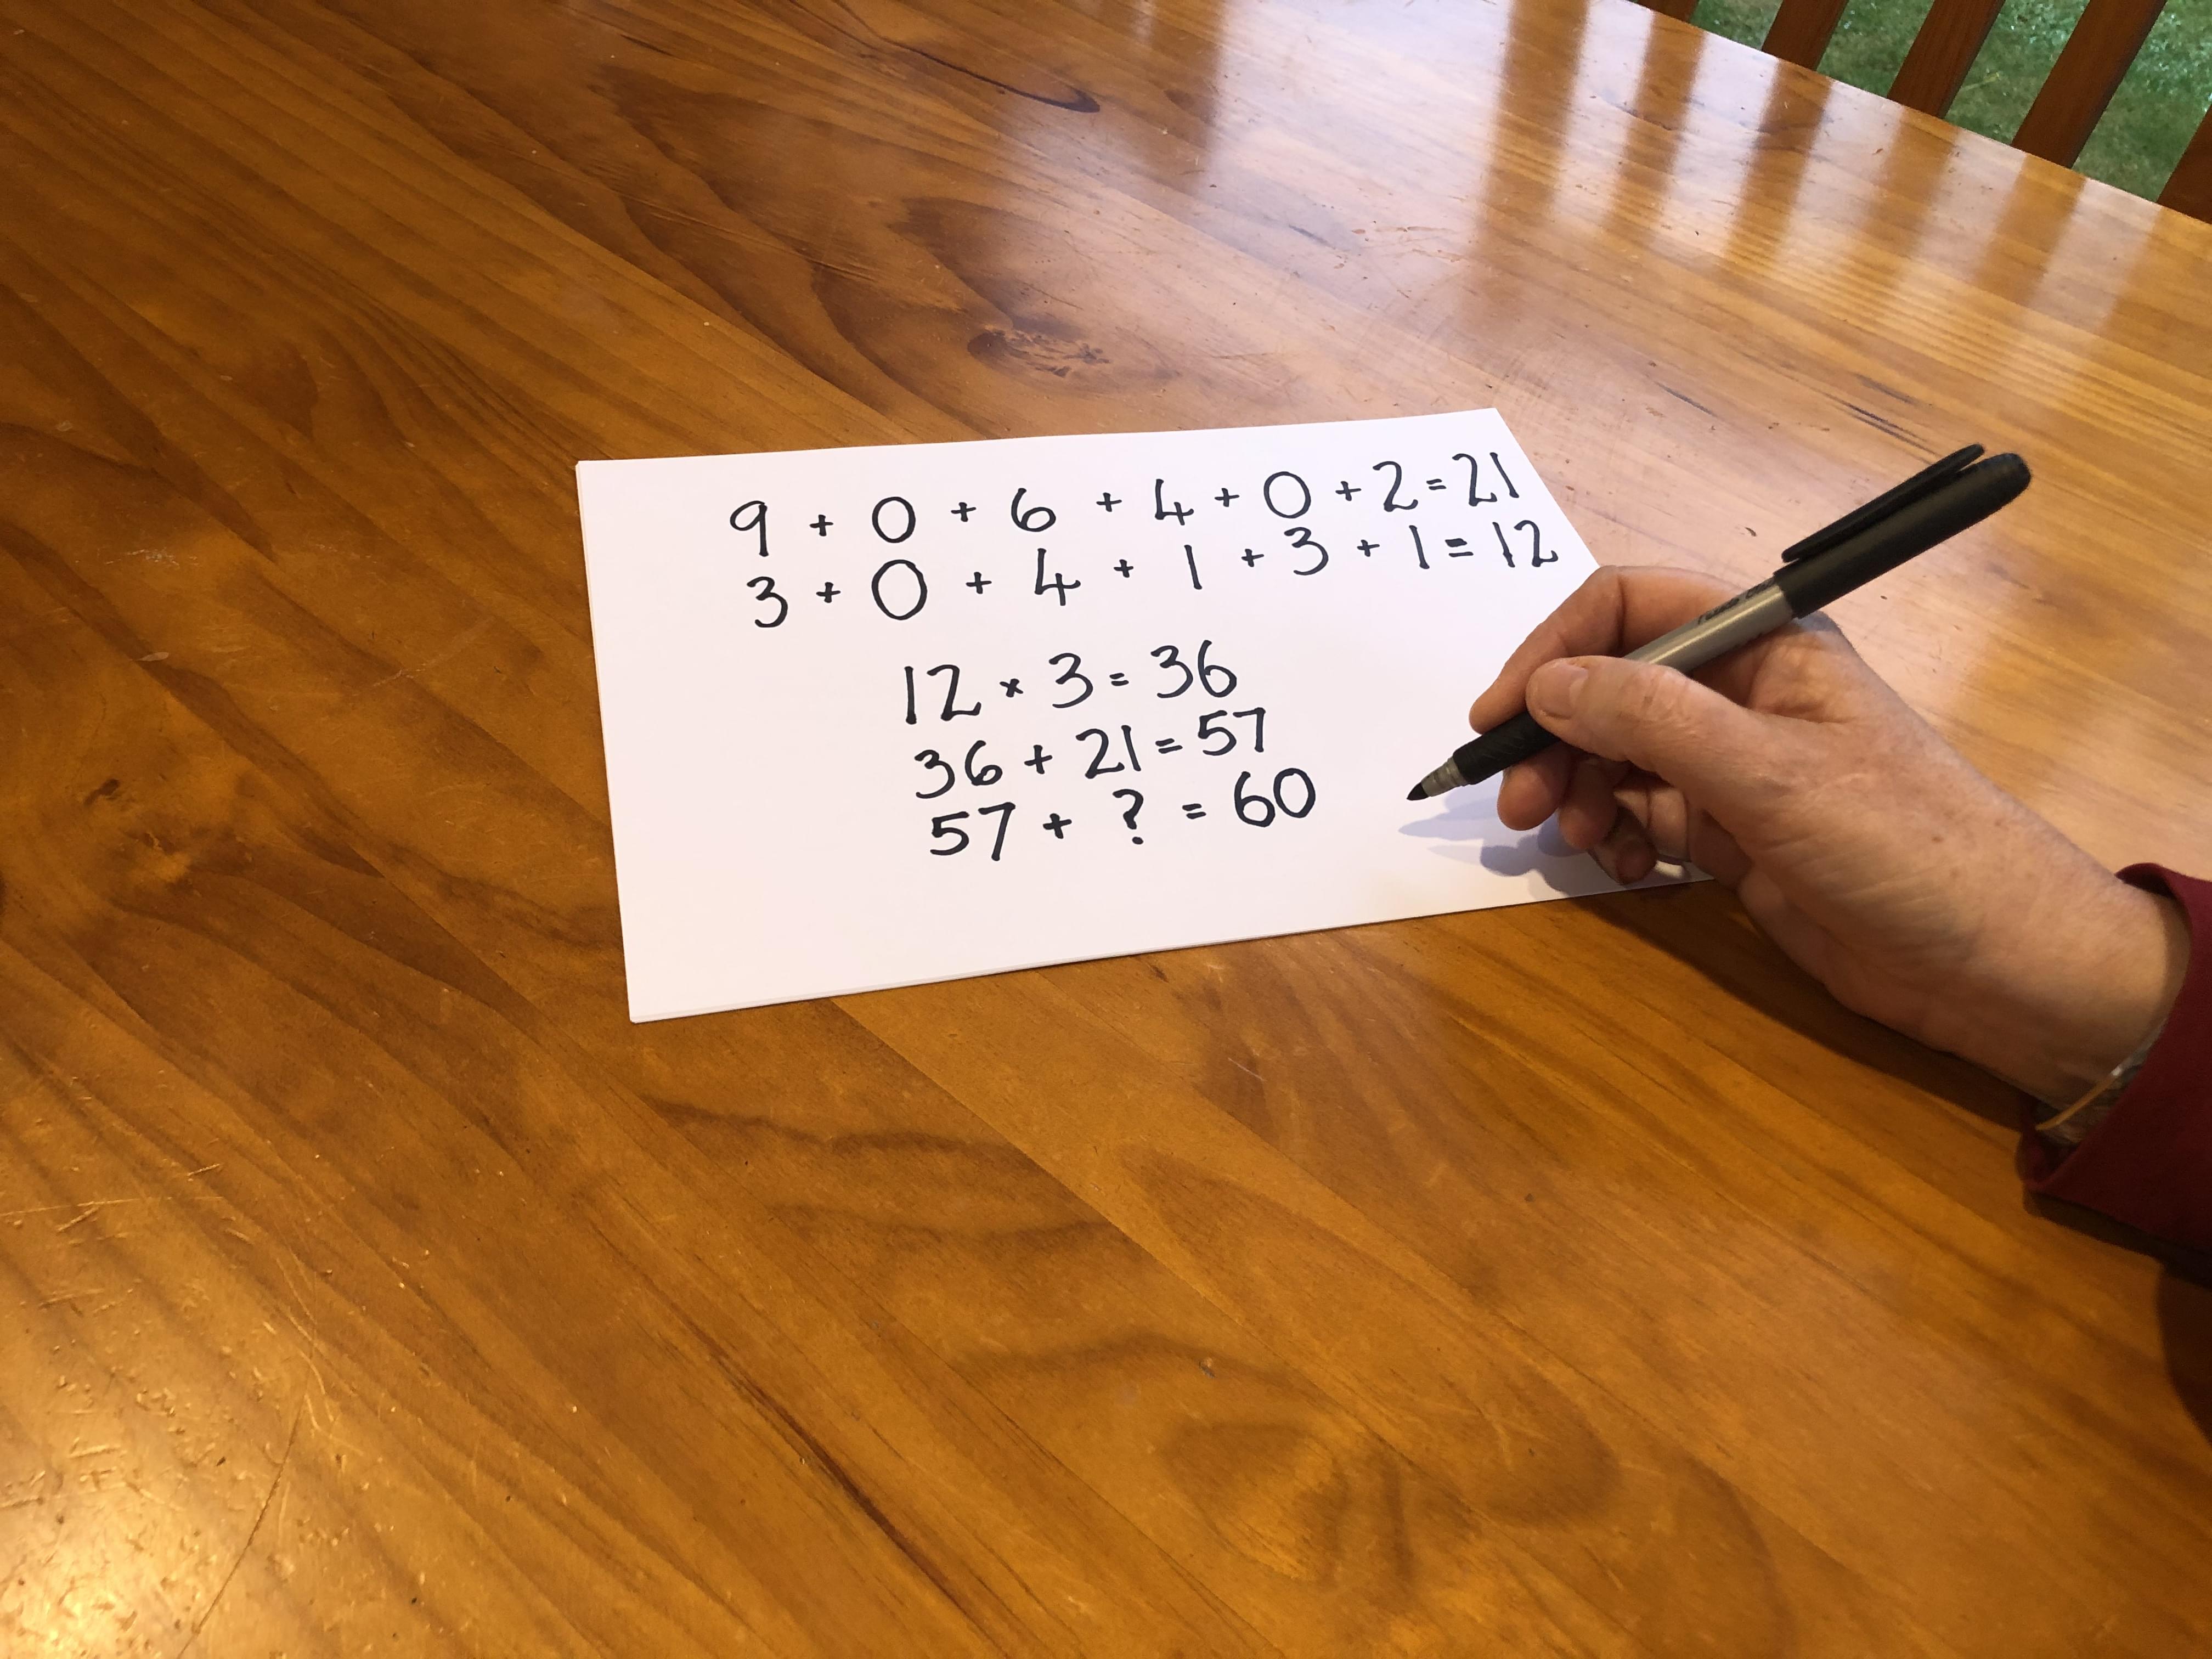 9 + 0 + 6 + 4 + 0 + 2 = 21
3 + 0 + 4 + 1 + 3 + 1 = 12
12 × 3 = 36
36 + 21 = 57
57 + ? = 60